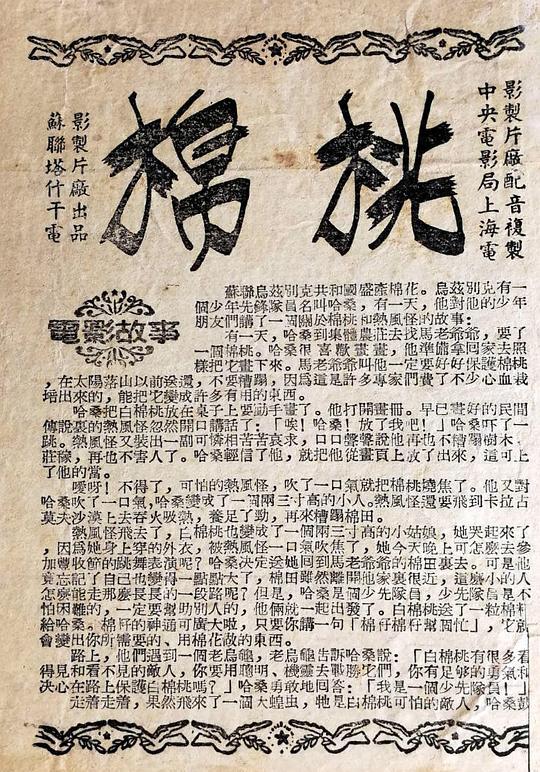 中央電影局上海電
影製片廠配音複製
棉桃
蘇聯塔什干電
影製片廠出品
電影故事
蘇聯烏茲別克共和國盛產棉花。烏茲別克有一
個少年先鋒隊員名叫哈桑，有一天，他對他的少年
朋友們講了一個關於棉桃和熱風怪的故事：
有一天，哈桑到集體農莊去找馬老爺爺，要了
一個棉桃。哈桑很喜歡畫畫，他準備拿回家去照
樣把它畫下來。馬老爺爺叫他一定要好好保護棉桃
，在太陽落山以前送還，不要糟蹋，因爲這是許多專家們費了不少心血栽
培出來的，能把它變成許多有用的東西。
哈桑把白棉桃放在桌子上要動手畫了。他打開畫冊。早已畫好的民間
傳說裏的熱風怪忽然開口講話了：「唉！哈桑！放了我吧！」哈桑吓了一
跳。熱風怪又裝出一副可憐相苦苦哀求，口口聲聲說他再也不糟蹋樹木、
莊稼，再也不害人了。哈桑輕信了他，就把他從畫頁上放了出來，這可上
了他的當。
噯呀！不得了，可怕的熱風怪，吹了一口氣就把棉桃燒焦了。他又對
哈桑吹了一口氣，哈桑變成了一個兩三寸高的小人。熱風怪還要飛到卡拉古
莫夫沙漠上去吞火吸熱，養足了勁，再來糟蹋棉田。
熱風怪飛去了，白棉桃也變成了一個兩三寸高的小姑娘，她哭起來了
，因爲她身上穿的外衣，被熱風怪一口氣吹焦了，她今天晚上可怎麽去參
加豐收節的跳舞表演呢？哈桑決定送她回到馬老爺爺的棉田裏去。可是他
竟忘記了自己也變得一點點大了，棉田雖然離開他家裏很近，這麽小的人
怎麽能走那麽長長的一段路呢？但是，哈桑是個少先隊員，少先隊員是不
怕困難的，一定要幫助別人的，他倆就一起出發了。白棉桃送了一粒棉籽
給哈桑。棉籽的神通可廣大啦，只要你講一句「棉仔棉仔幫個忙」，它就
會變出你所需要的、用棉花做的東西。
路上，他們遇到一個老烏龜，老烏龜告訴哈桑說：「白棉桃有很多看
得見和看不見的敵人，你要用聰明、機靈去戰勝它們，你有足够的勇氣和
決心在路上保護白棉桃嗎？」哈桑勇敢地回答：「我是一個少先隊員！」
走着走着，果然飛來了一個大蝗虫，牠是白棉桃可怕的敵人，哈桑